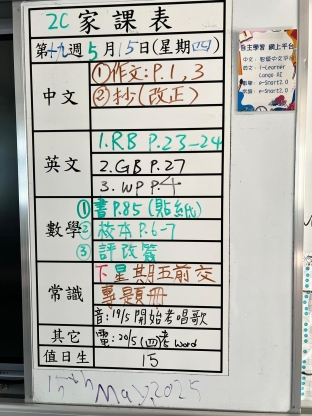 2C 家課表
第十九週5月15日(星期四)
中文
①作文:P.1,3
②抄(改正)
英文
1.RB P.23-24
2.GB P.27
3.WP P.4
數學
①書P.85(貼紙)
②校本P.6-7
③評改簽
常識
下星期五前交
專題冊
音:19/5開始考唱歌
其它
電:20/5(四)考 Word
值日生
15
15th May,2025
自主學習 網上平台
中文:智愛中文平台
英文:i-Learner
Conga AI
數學:e-Smart2.0
常識:e-Smart2.0